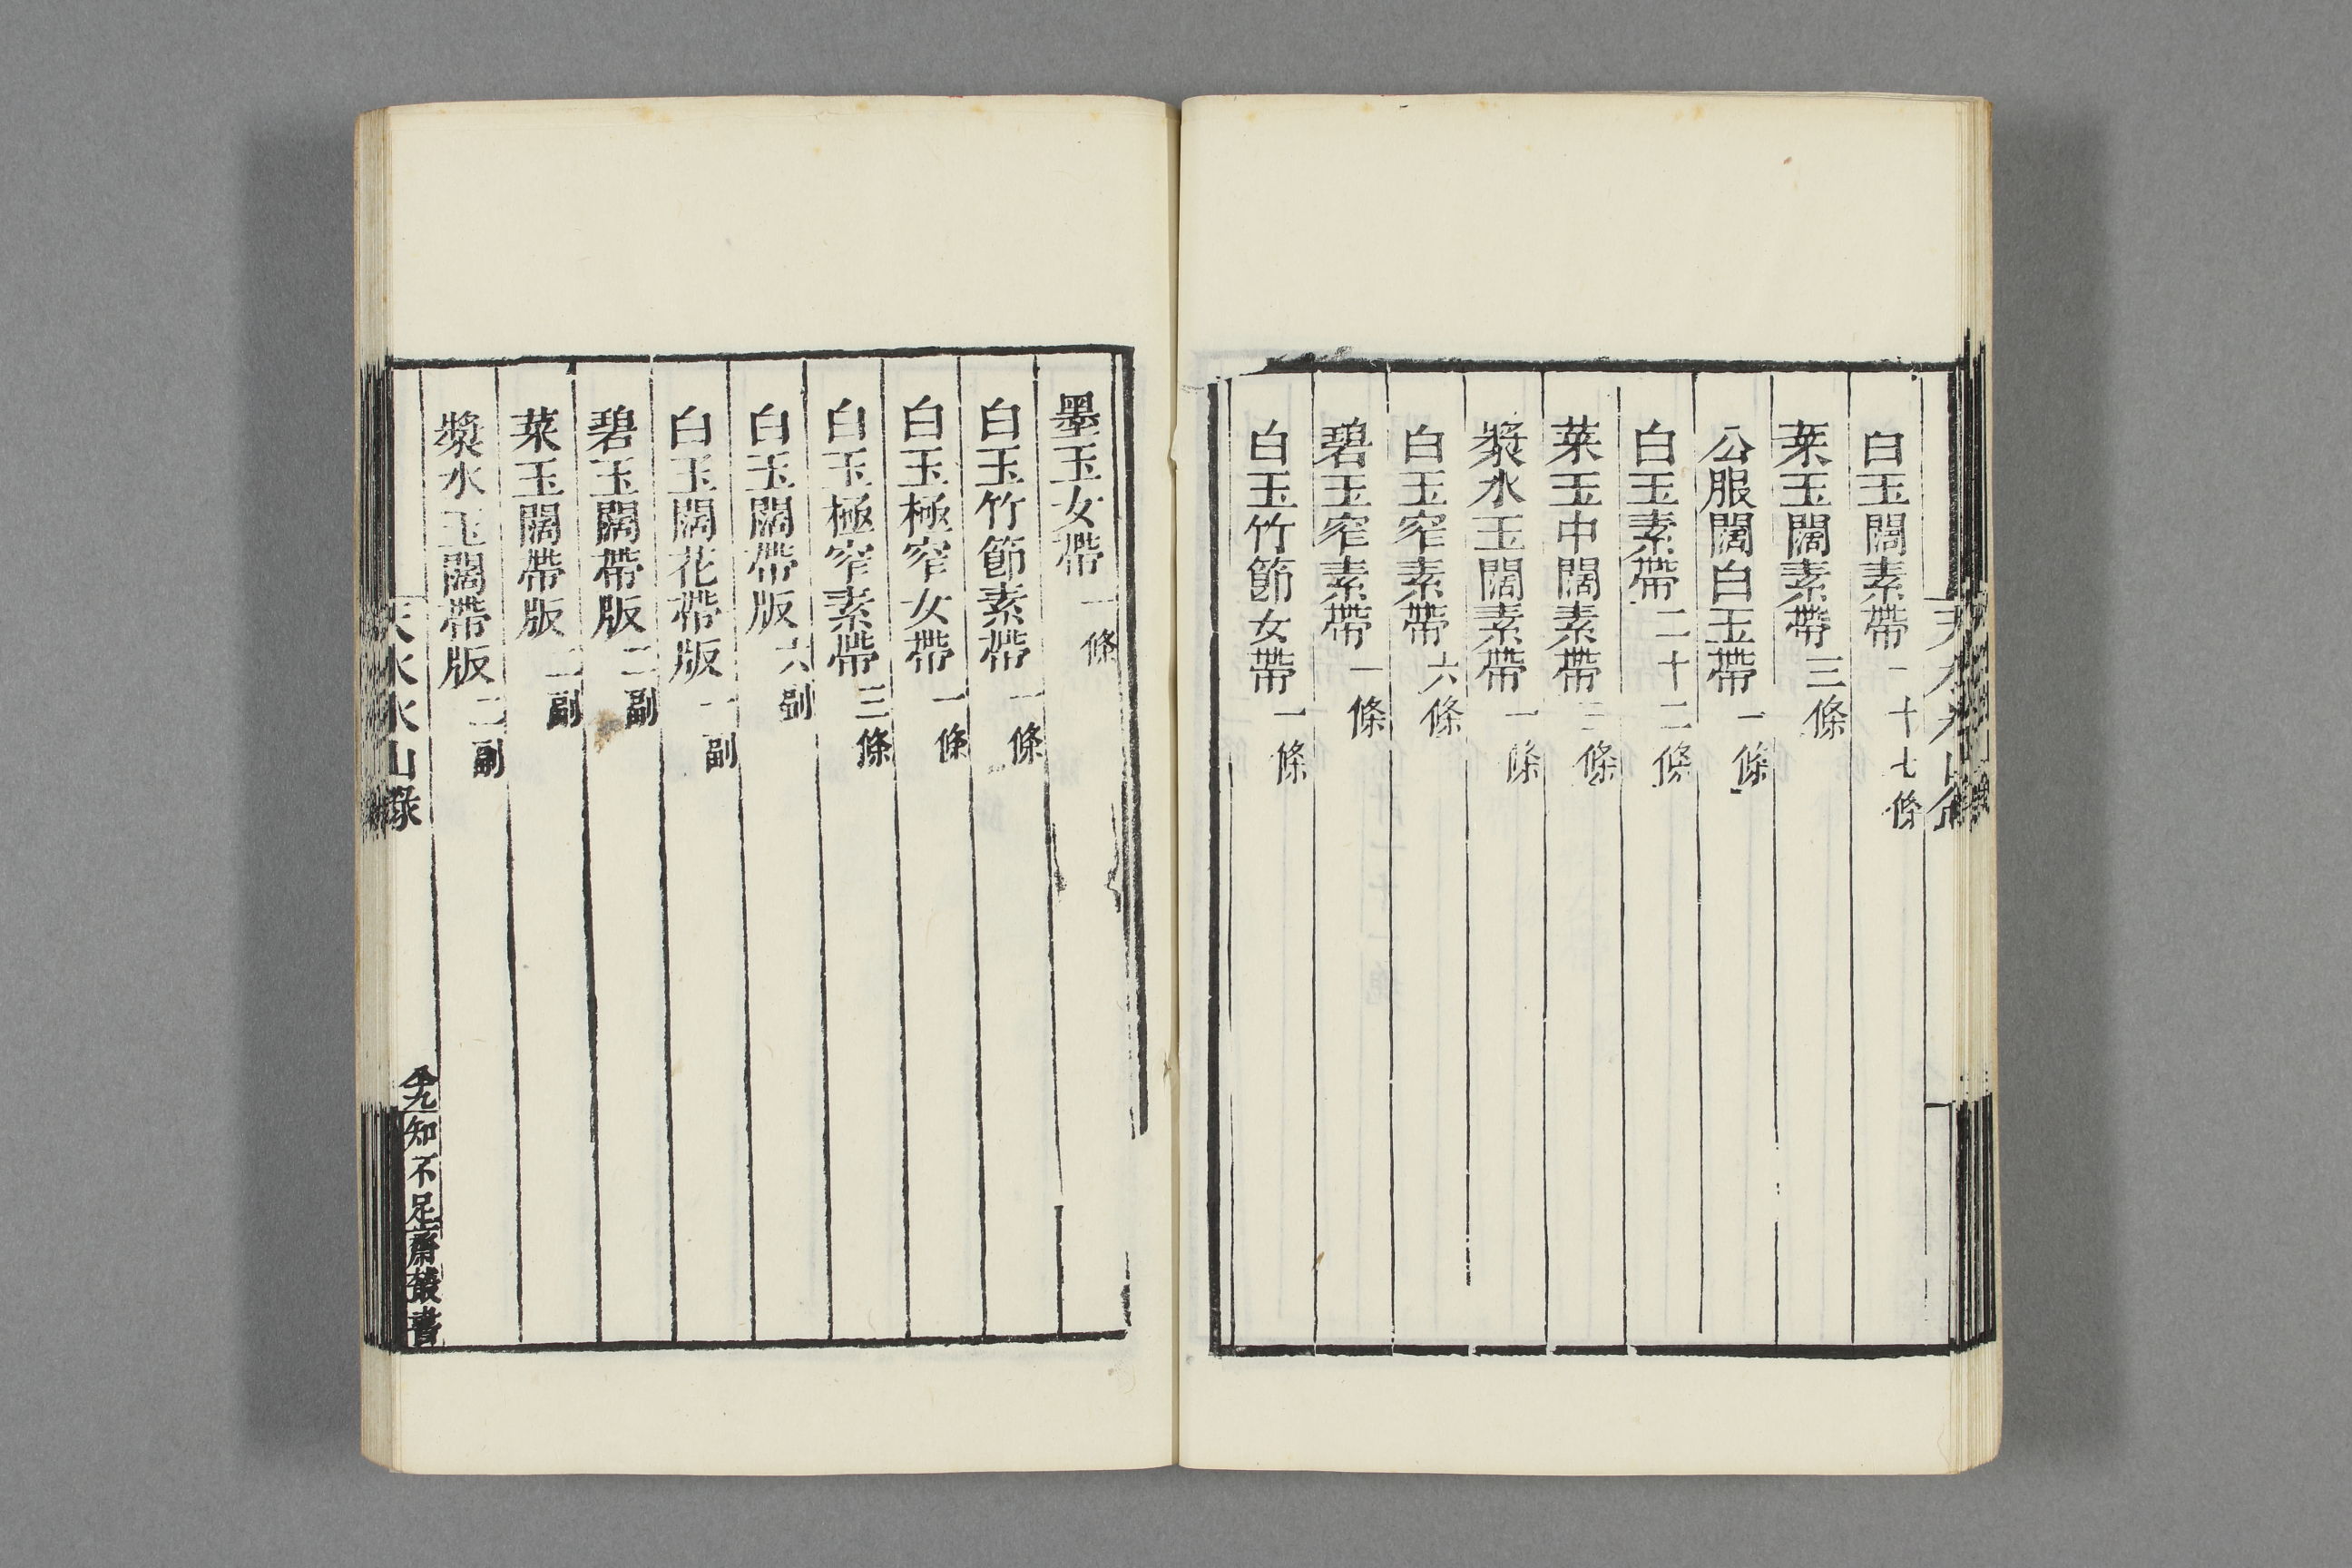 白玉闊素帶一十七條
菜玉闊素帶三條
公服闊白玉帶一條
白玉素帶二十二條
菜玉中闊素帶三條
漿水玉闊素帶一條
白玉窄素帶六條
碧玉窄素帶一條
白玉竹節女帶一條
墨玉女帶一條
白玉竹節素帶一條
白玉極窄女帶一條
白玉極窄素帶三條
白玉闊帶版六副
白玉闊花帶版一副
碧玉闊帶版二副
菜玉闊帶版二副
漿水玉闊帶版二副
天水冰山錄
知不足齋叢書